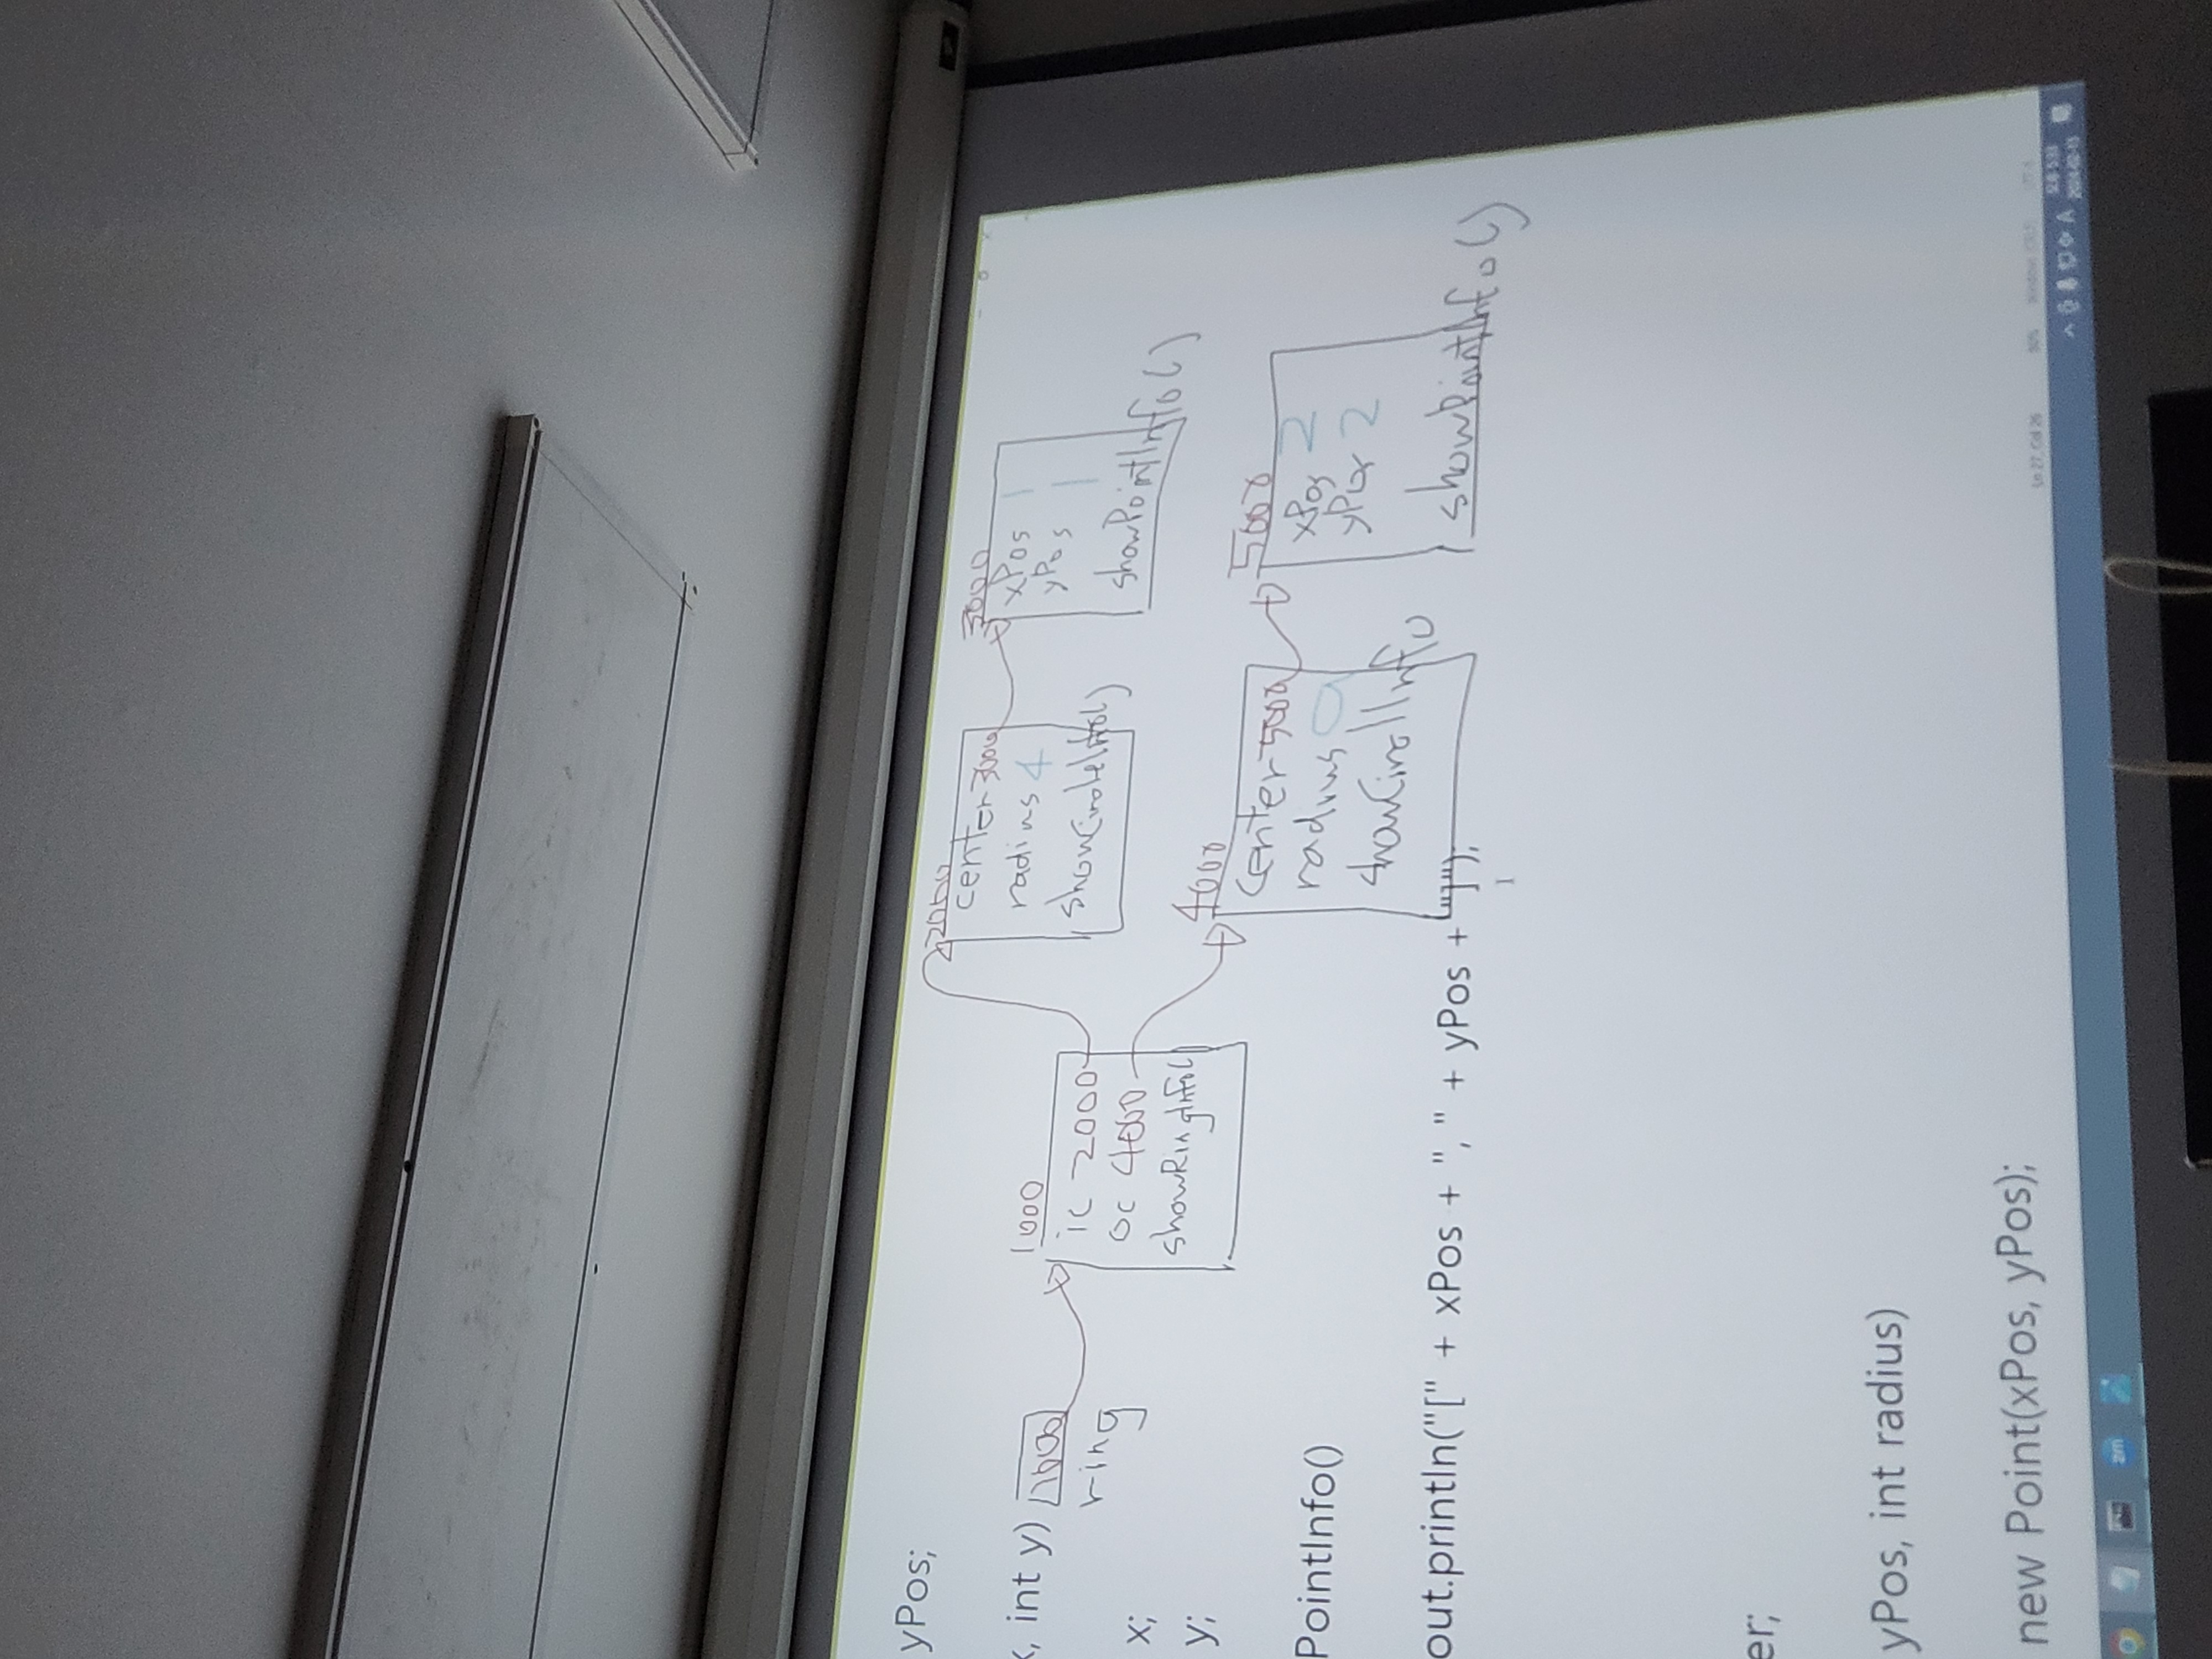 yPos;
x, int y)
x;
y;
PointInfo()
out.println("[" + xPos + "," + yPos + "]");
er;
yPos, int radius)
new Point(xPos, yPos);
1000
ring
1000
ic 2000
oc 4000
showRingInfo()
2000
center 3000
radius 4
showCircleInfo()
3000
xPos 1
yPos 1
showPointInfo()
4000
center 5000
radius 9
5000
xPos 2
yPos 2
showPointInfo()
Ln 27, Col 26
zm
A